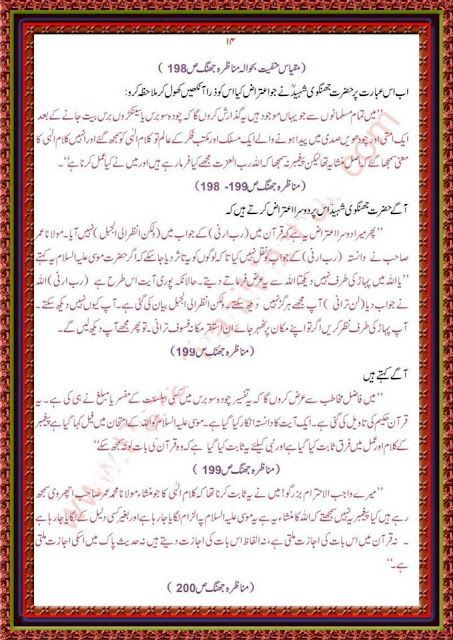 ۱۴
(مقیاس حنفیت بحوالہ مناظرہ جھنگ ص 198)
اب اس عبارت پر حضرت جھنگوی شہیدؒ نے جو اعتراض کیا اس کو ذرا آنکھیں کھول کر ملاحظہ کرو:
’’میں تمام مسلمانوں سے جو یہاں موجود ہیں یہ گذارش کروں گا کہ چودہ سو برس یا سینکڑوں برس بیت جانے کے بعد
ایک امتی اور چودھویں صدی میں پیدا ہونے والے ایک مسلک اور مکتب فکر کے عالم تو کلام الٰہی کو سمجھ گئے اور انہیں کلام الٰہی کا
معنی سمجھا گئے کہ اصل منشا یہ تھا لیکن پیغمبر نہ سمجھا کہ اللہ رب العزت مجھے کیا فرما رہے ہیں اور میں نے کیا عمل کرنا ہے‘‘۔
(مناظرہ جھنگ ص 199- 198)
آگے حضرت جھنگوی شہید اس پر دوسرا اعتراض کرتے ہیں کہ
’’پھر میرا دوسرا اعتراض یہ ہے کہ قرآن میں (رب ارنی) کے جواب میں (ولکن انظر الی الجبل) نہیں آیا۔ مولانا عمر
صاحب نے دانستہ (رب ارنی) کے جواب کو نقل نہیں کیا تاکہ لوگوں کو یہ تاثر دیا جا سکے کہ اگر حضرت موسی علیہ السلام یہ کہتے
’’یا اللہ میں پہاڑ کی طرف نہیں دیکھتا‘‘ اللہ سے یہ عرض فرماتے دیتے۔ حالانکہ پوری آیت اس طرح ہے (رب ارنی) اللہ
نے جواب دیا (لن ترانی) آپ مجھے ہرگز نہیں دیکھ سکتے۔ ولکن انظر الی الجبل بیان کی گئی ہے۔ آپ کیوں نہیں دیکھ سکتے۔
آپ پہاڑ کی طرف نظر کریں اگر تو اپنے مکان پر ٹھہر جائے ان استقر مکانہ فسوف ترانی۔ تو پھر مجھے آپ دیکھ لیں گے۔
(مناظرہ جھنگ ص 199)
آگے کہتے ہیں
’’میں فاضل مخاطب سے عرض کروں گا کہ یہ تفسیر چودہ سو برس میں کسی اہلسنت کے مفسر یا مبلغ نے ہی کی ہے۔ یہ
قرآن حکیم کی تاویل کی گئی ہے۔ ایک آیت کا دانستہ انکار کیا گیا ہے۔ موسی علیہ السلام کو اللہ کے امتحان میں فیل کہا گیا ہے پیغمبر
کے کلام اور عمل میں فرق ثابت کیا گیا ہے اور نبی کیلئے یہ ثابت کیا گیا ہے کہ وہ قرآن کی بات کو نہ سمجھ سکے‘‘
(مناظرہ جھنگ ص 199)
’’میرے واجب الاحترام بزرگو! میں نے یہ ثابت کرنا تھا کہ کلام الٰہی کا جو منشاء مولانا محمد عمر صاحب اچھروی سمجھ
رہے ہیں کیا پیغمبر یہ نہیں سمجھتے کہ اللہ کا منشاء یہ ہے یہ موسی علیہ السلام پہ الزام لگایا جا رہا ہے اور بغیر کسی دلیل کے لگایا جا رہا ہے
۔ نہ قرآن میں اس بات کی اجازت ملتی ہے، نہ الفاظ اس بات کی اجازت دیتے ہیں نہ حدیث پاک میں اسکی اجازت ملتی
ہے۔‘‘
(مناظرہ جھنگ ص 200)